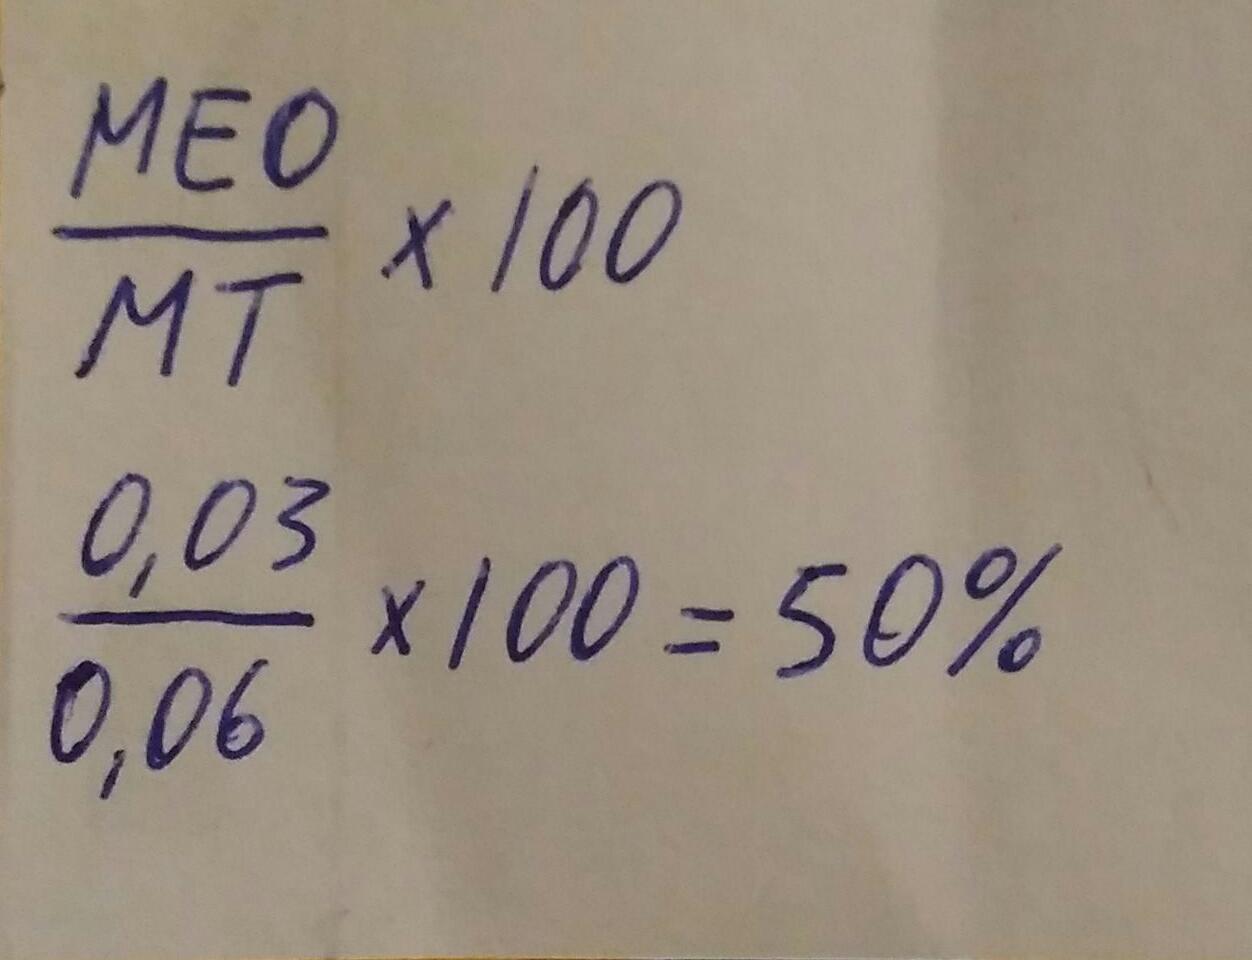 MEO
MT
x 100
0,03
0,06
x 100 = 50%